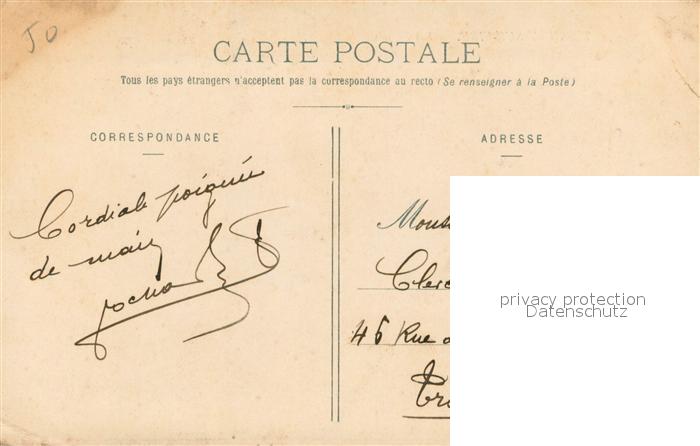 50
CARTE POSTALE
Tous les pays étrangers n'acceptent pas la correspondance au recto (Se renseigner à la Poste)
CORRESPONDANCE
ADRESSE
Cordiale poignée
de main
Mons
Clerc
46 Rue
privacy protection
Datenschutz